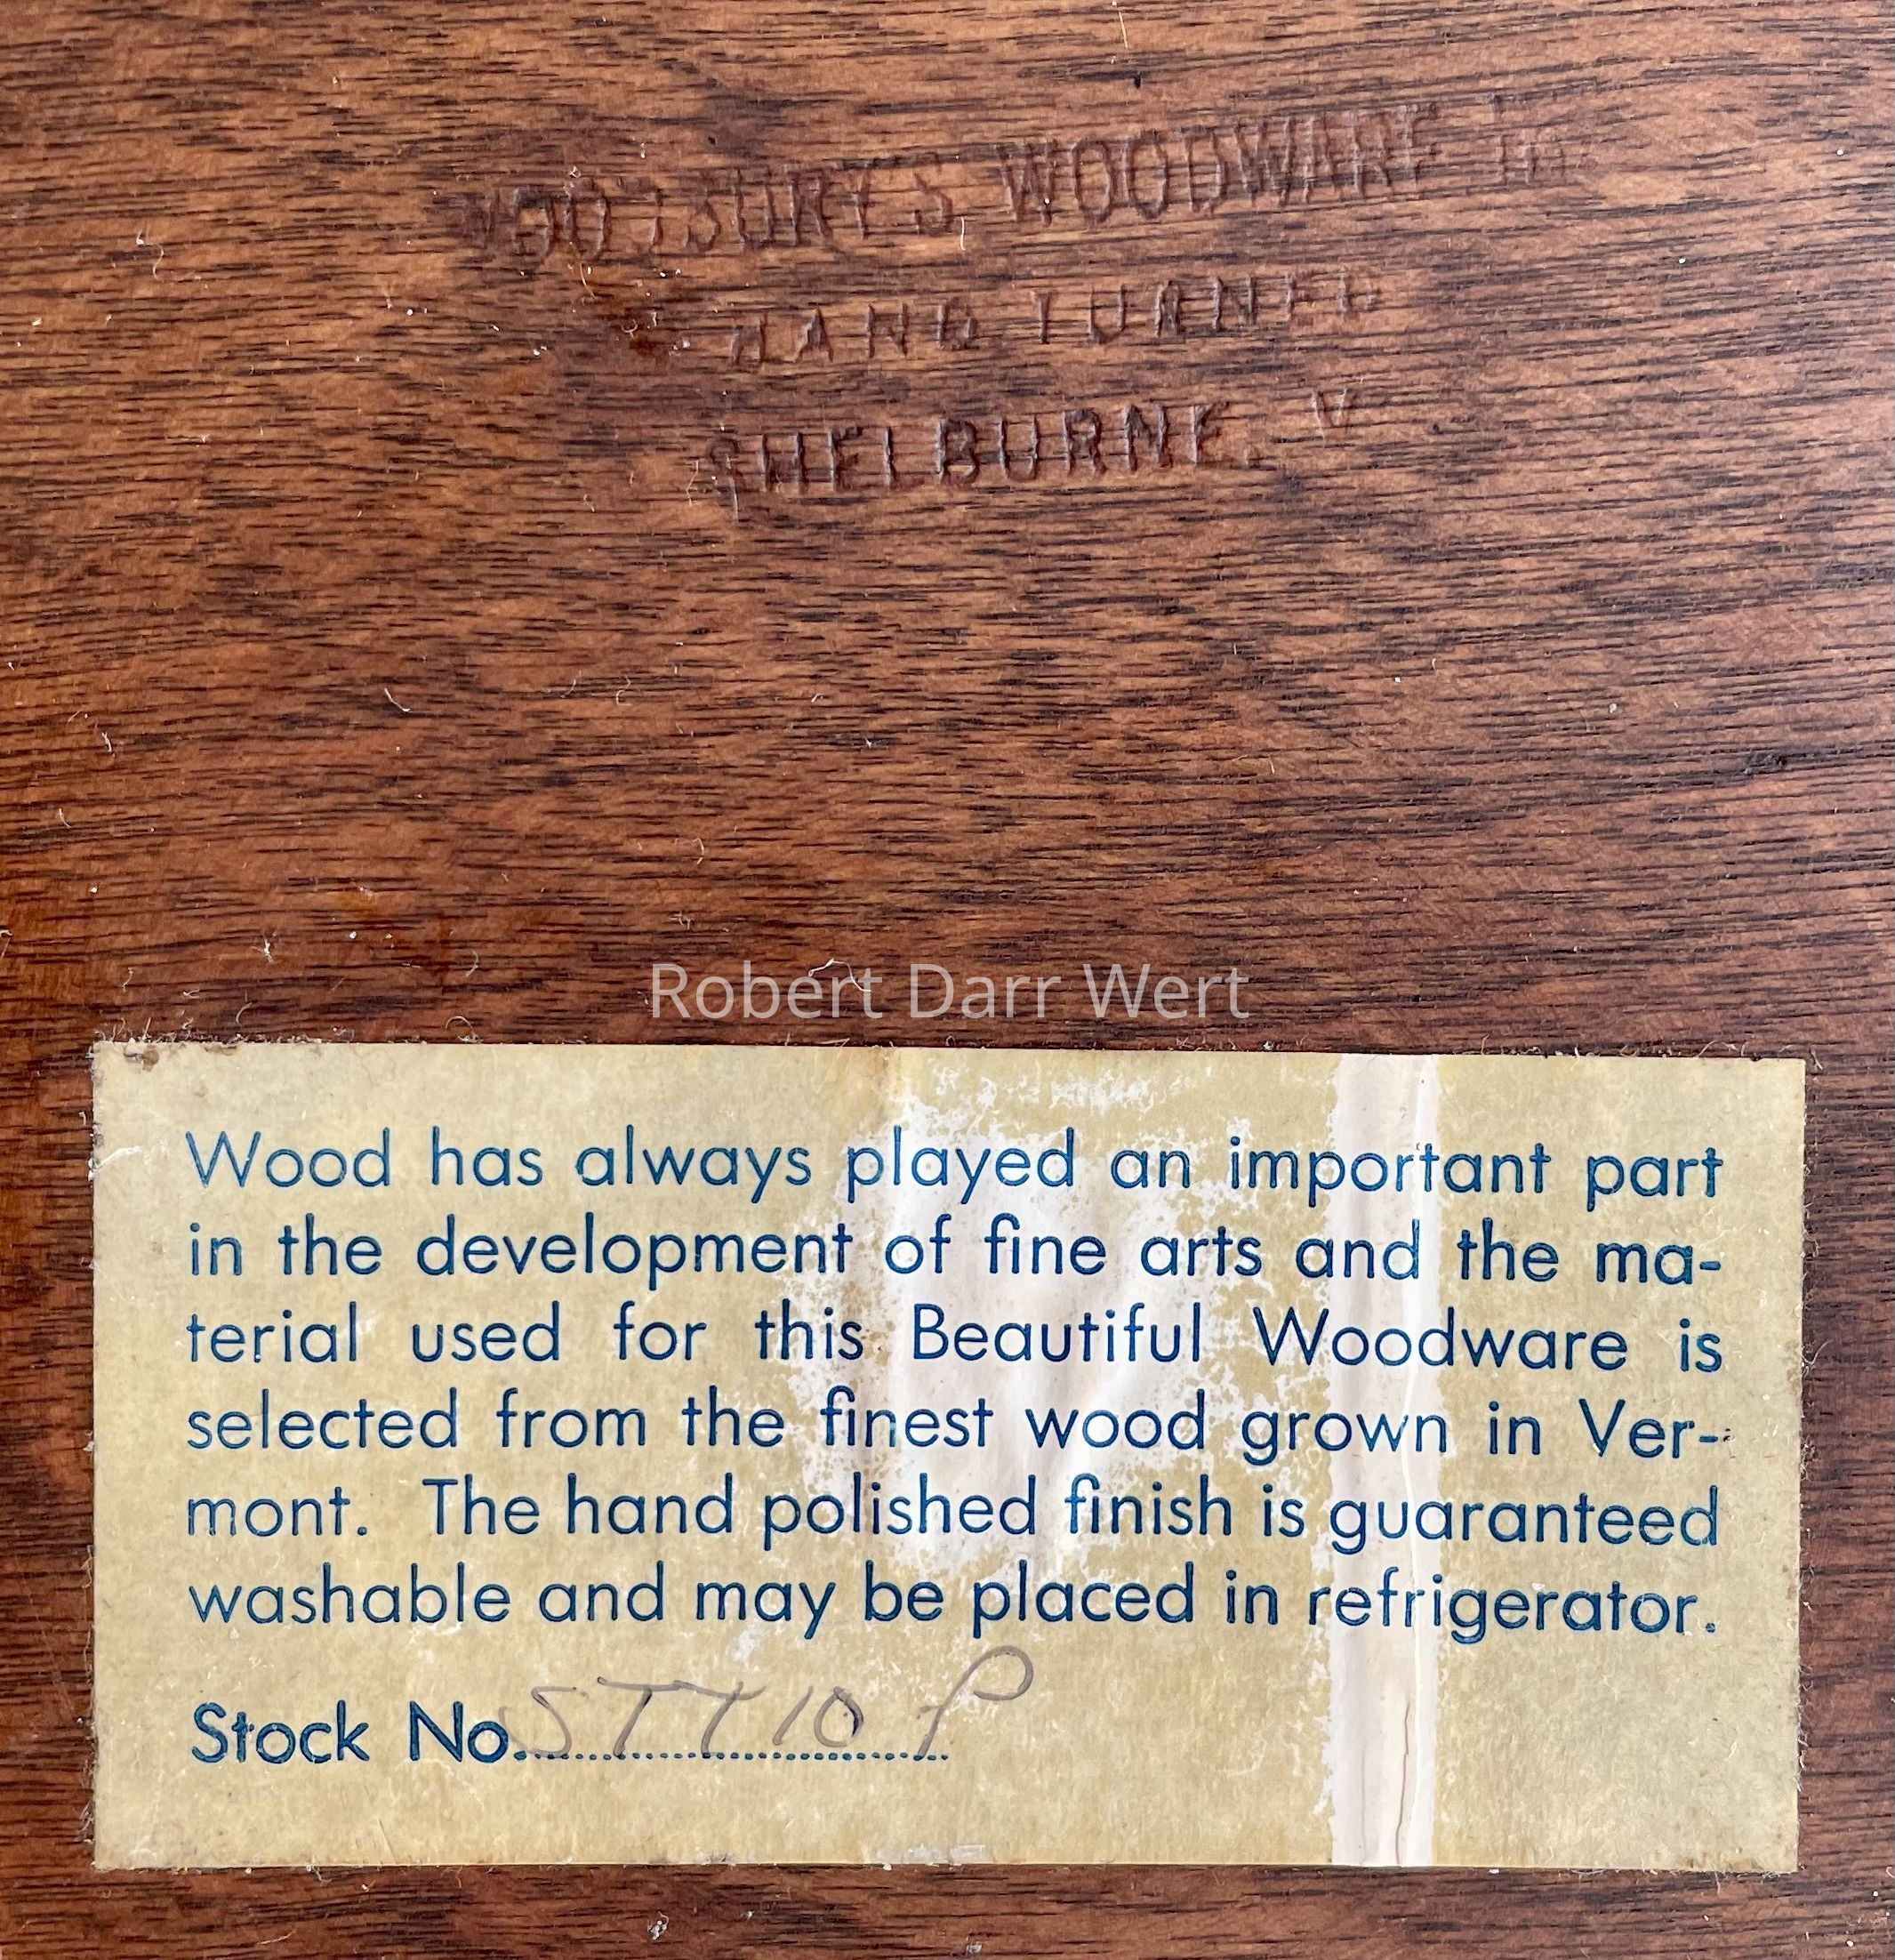 WOODWARE In
HAND TURNED
SHELBURNE. V
Robert Darr Wert
Wood has always played an important part
in the development of fine arts and the ma-
terial used for this Beautiful Woodware is
selected from the finest wood grown in Ver-
mont. The hand polished finish is guaranteed
washable and may be placed in refrigerator.
Stock No. STT 10 P